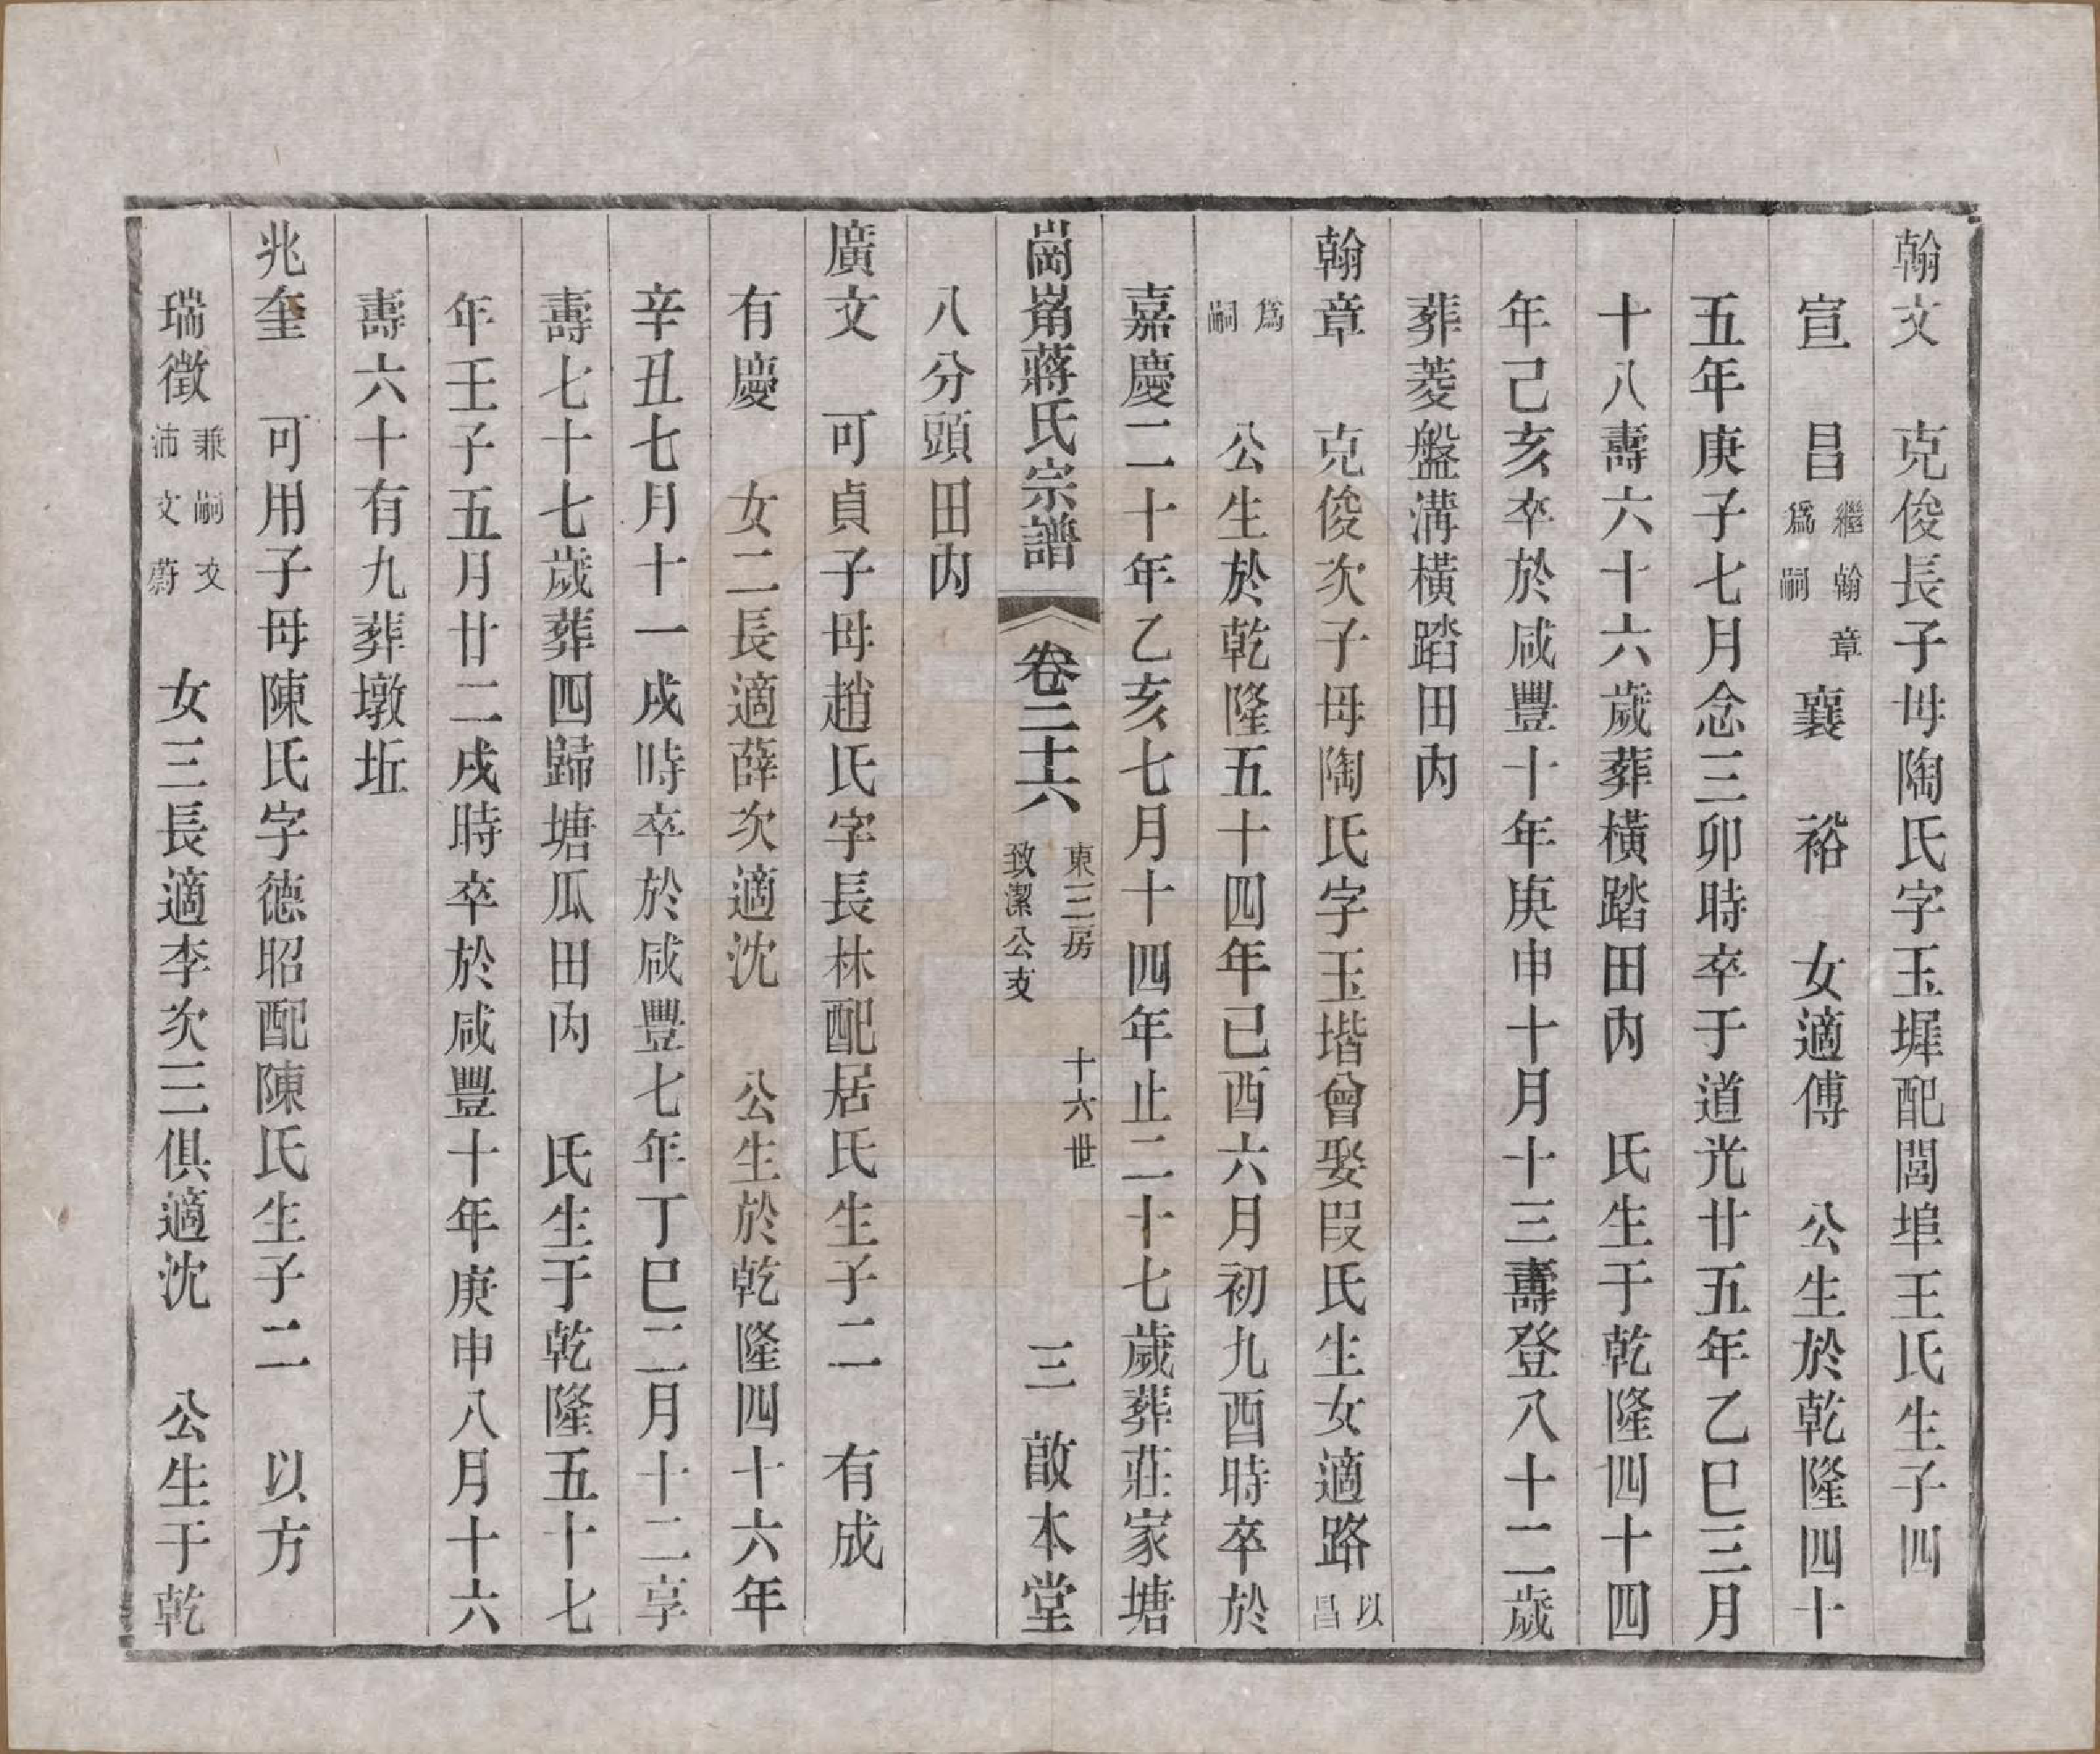 翰文　克俊長子母陶氏字玉墀配閭埠王氏生子四
宣　昌繼翰章爲嗣　襄　裕　女適傅　公生於乾隆四十
五年庚子七月念三卯時卒于道光廿五年乙巳三月
十八壽六十六歲葬橫踏田內　氏生于乾隆四十四
年己亥卒於咸豐十年庚申十月十三壽登八十二歲
葬菱盤溝橫踏田內
翰章　克俊次子母陶氏字玉堦曾娶段氏生女適路以昌
爲嗣　公生於乾隆五十四年己酉六月初九酉時卒於
嘉慶二十年乙亥七月十四年止二十七歲葬莊家塘
崗崙蔣氏宗譜　卷二十六　東三房致潔公支　十六世　三　啟本堂
八分頭田內
廣文　可貞子母趙氏字長林配居氏生子二　有成
有慶　女二長適薛次適沈　公生於乾隆四十六年
辛丑七月十一戌時卒於咸豐七年丁巳二月十二享
壽七十七歲葬四歸塘瓜田內　氏生于乾隆五十七
年壬子五月廿二戌時卒於咸豐十年庚申八月十六
壽六十有九葬墩坵
兆奎　可用子母陳氏字德昭配陳氏生子二　以方
瑞徵兼嗣文沛文蔚　女三長適李次三俱適沈　公生于乾